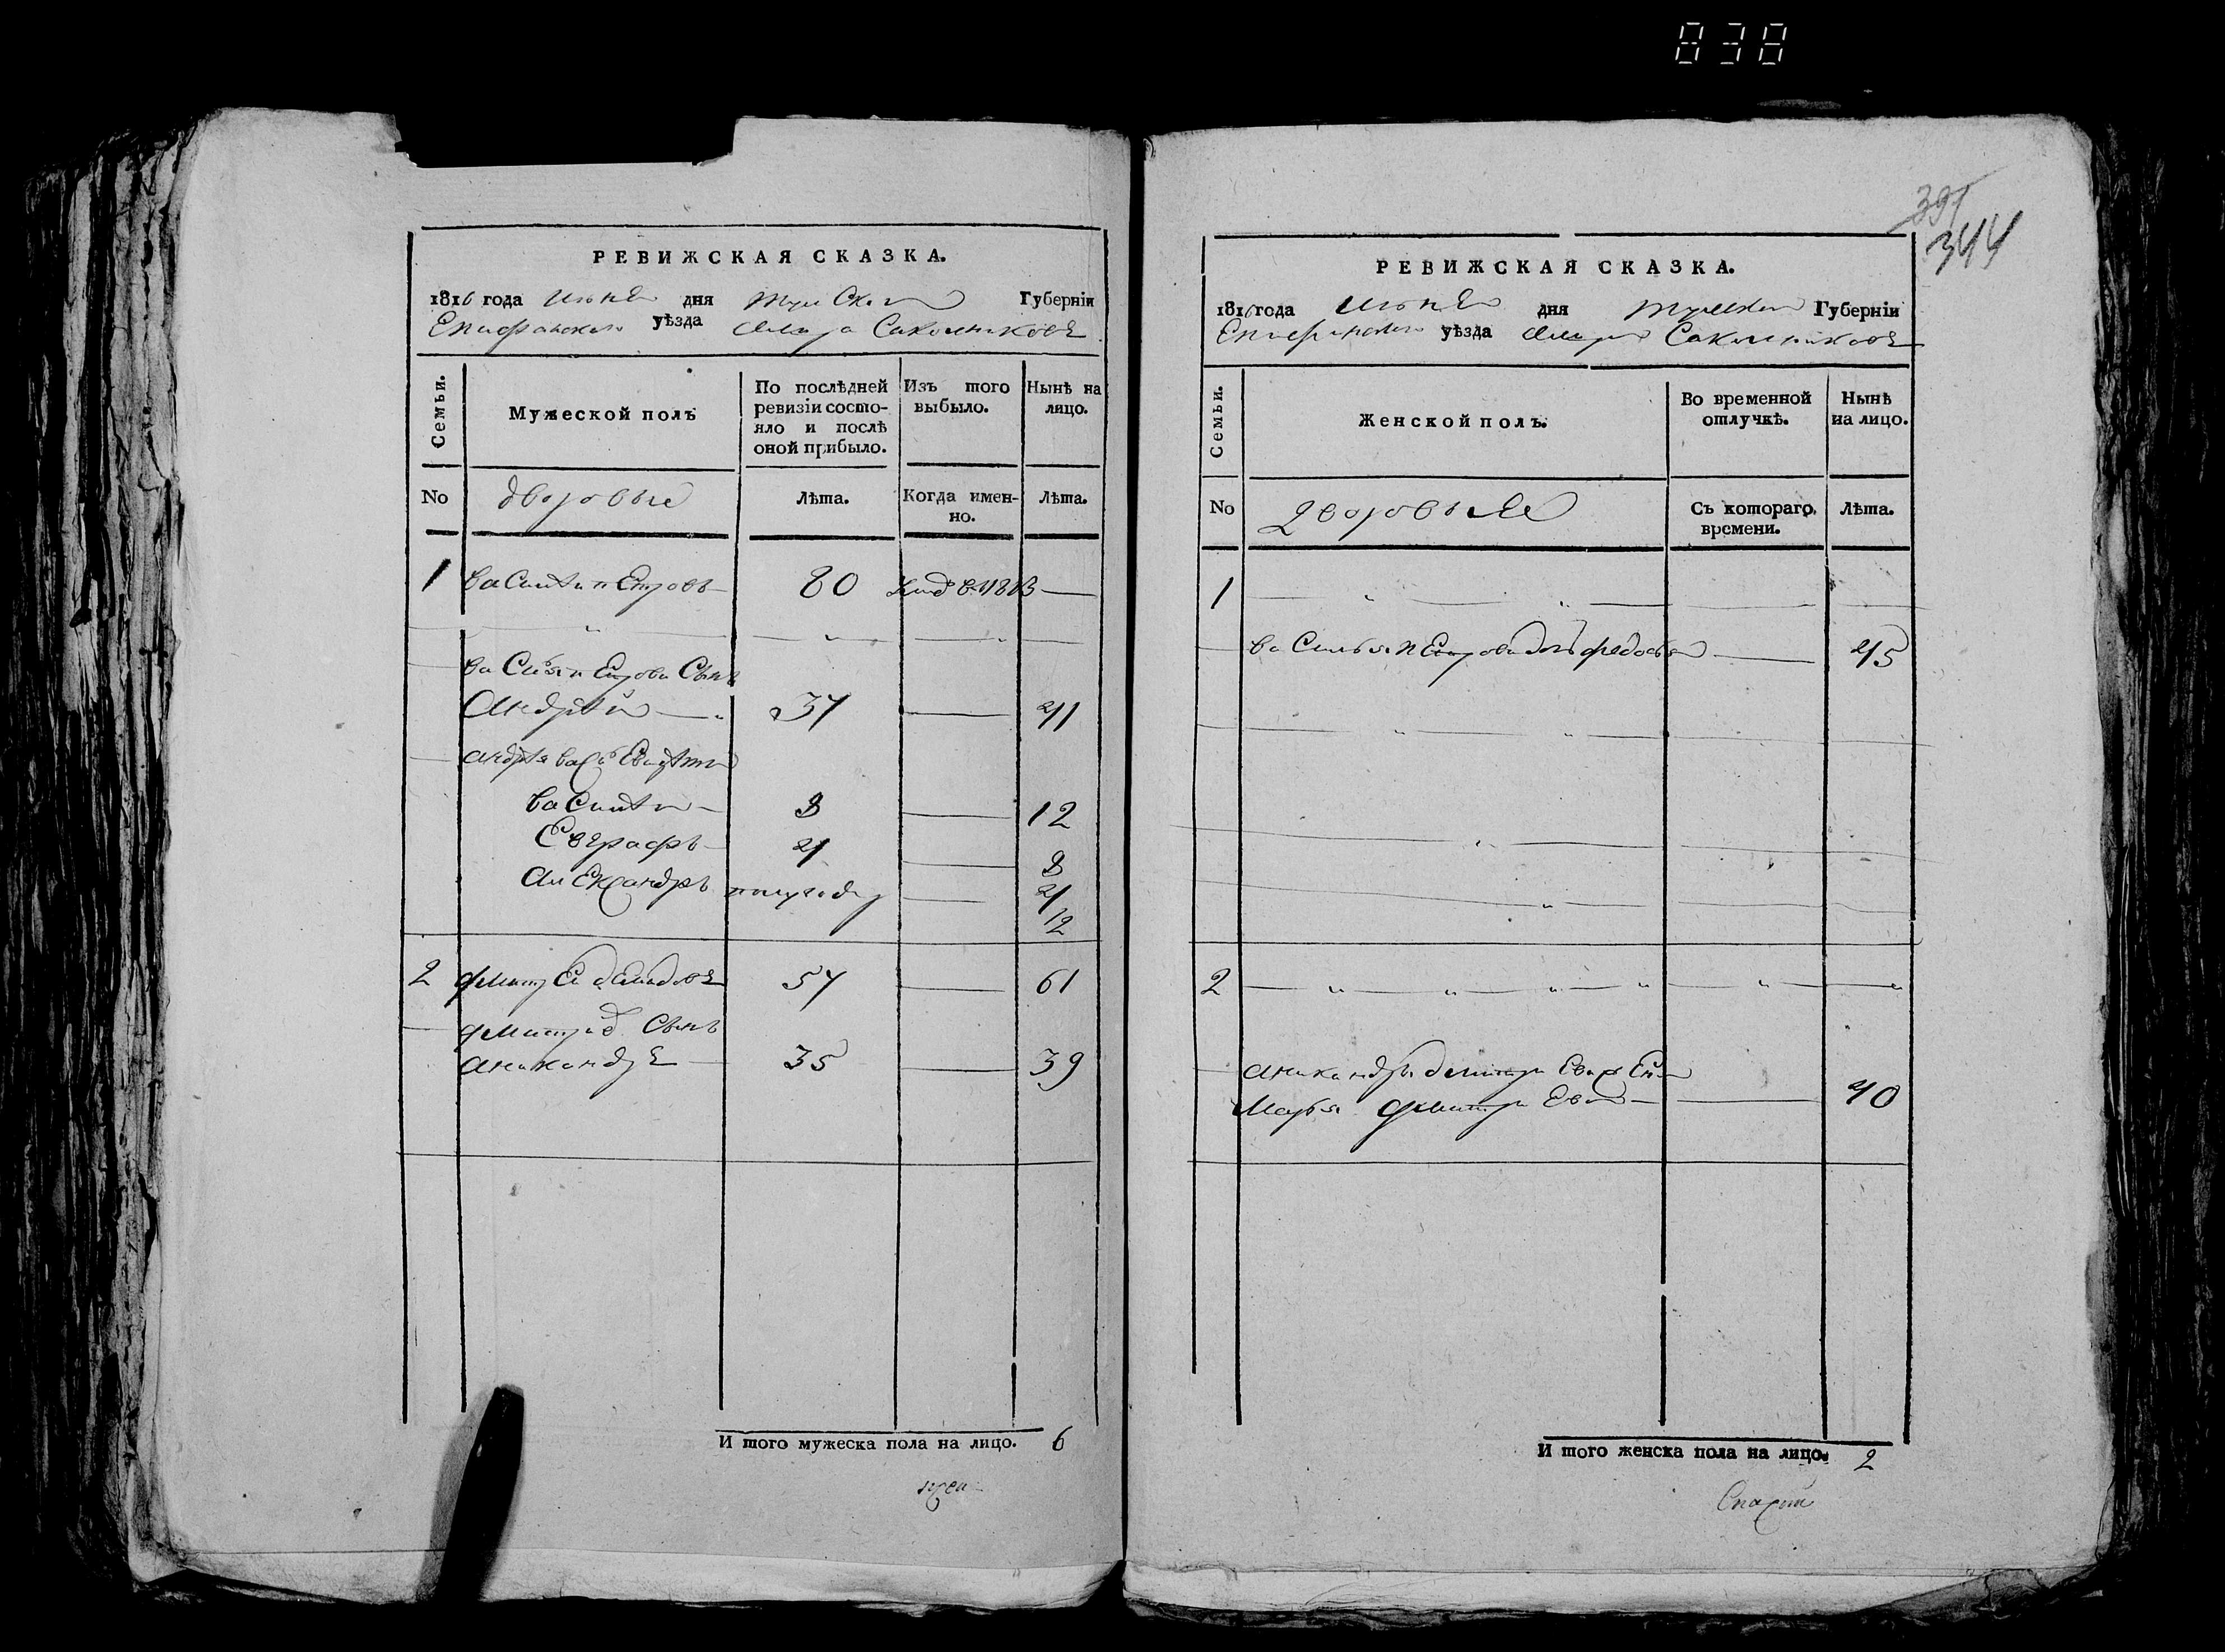 838
РЕВИЖСКАЯ СКАЗКА.
1816 года июня дня Тулской Губерніи
Епифанского уѣзда Села Саколниковъ
Семьи.
Мужеской полъ
По послѣдней ревизіи состояло и послѣ оной прибыло.
Изъ того выбыло.
Нынѣ на лицо.
No
дворовые
Лѣта.
Когда именно.
Лѣта.
1 василей петровъ 80 1813
василья петрова сынъ
Андрей 37 41
андрея
василей 8 12
Евграфъ 4 8
александръ полугоду 4
12
2 дмитрей 57 61
сынъ
аникандръ 35 39
И того мужеска пола на лицо. 6
391
344
РЕВИЖСКАЯ СКАЗКА.
1816 года июня дня тулской Губерніи
Епифанского уѣзда Села Саколниковъ
Семьи.
Женской полъ.
Во временной отлучкѣ.
Нынѣ на лицо.
No
дворовые
Съ котораго времени.
Лѣта.
1
василья петрова федосья 45
2
аникандра дмитриева жена
Марья дмитриева 40
И того женска пола на лицо. 2